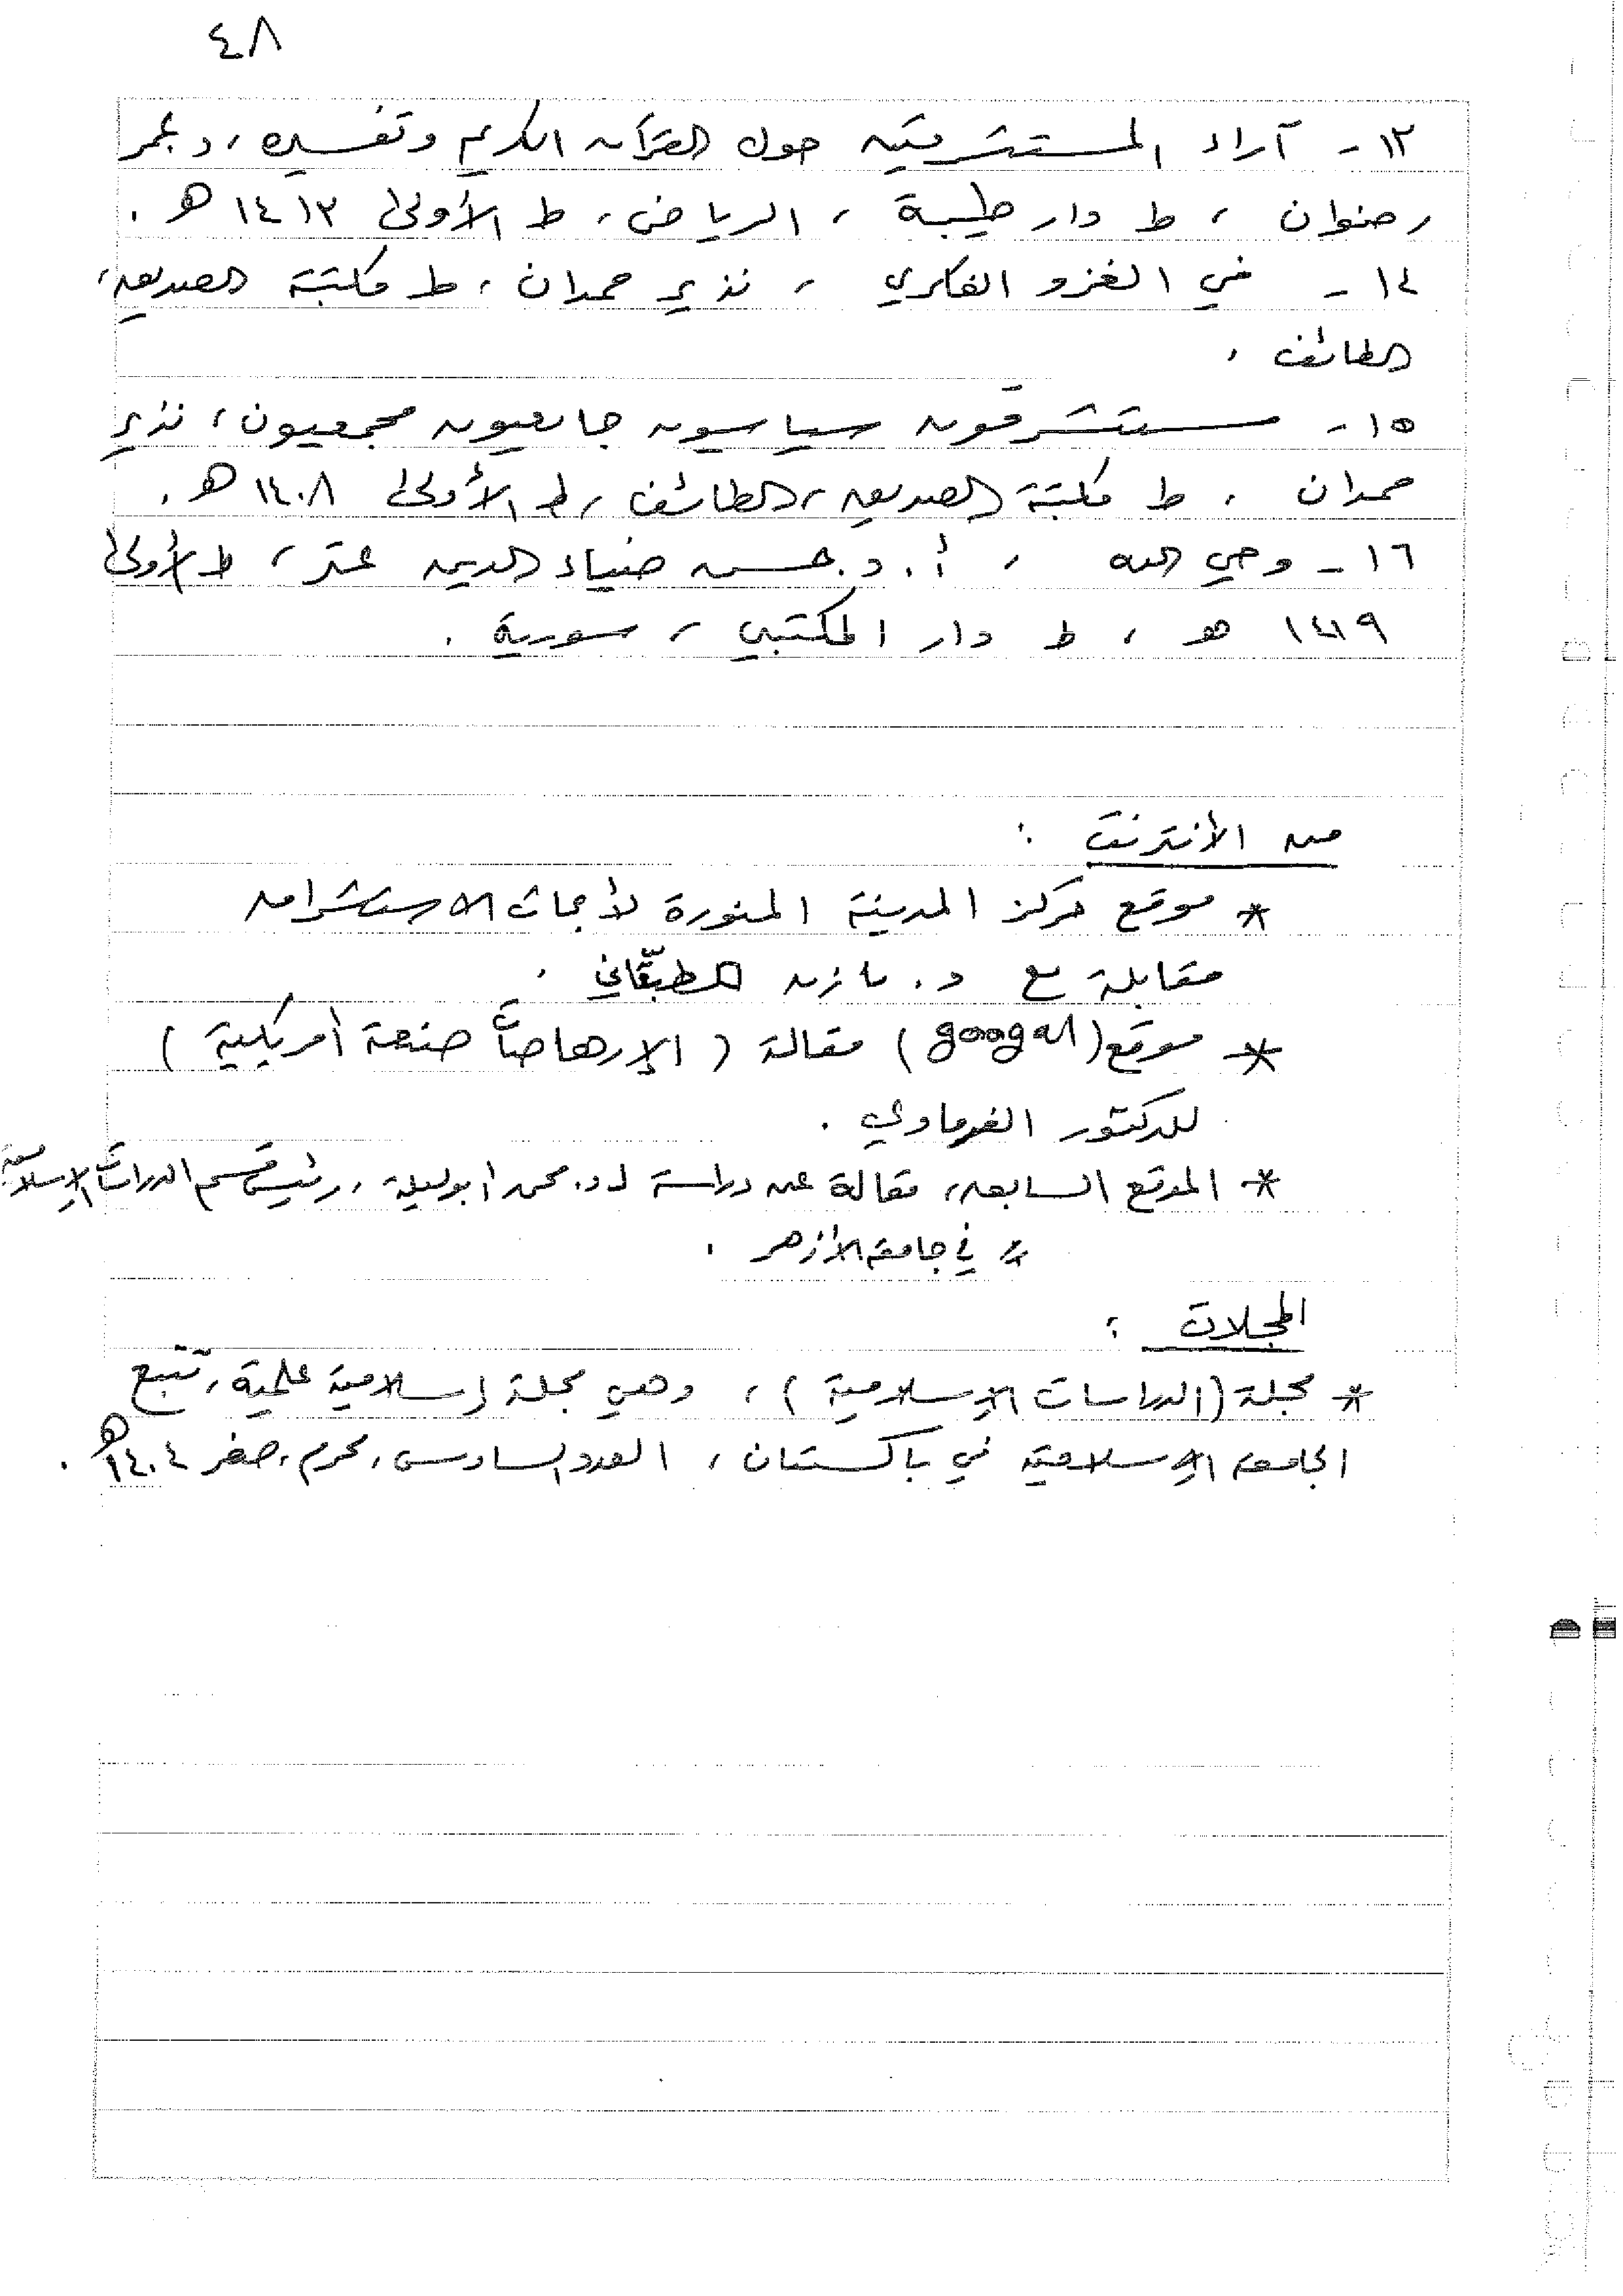 ٤٨
١٣ - آراء المستشرقين حول القرآن الكريم وتفسيره، د عمر
رضوان، ط دار طيبة، الرياض، ط الأولى ١٤١٣ هـ.
١٤ - في الغزو الفكري، نذير حمدان، ط مكتبة الصديق،
الطائف.
١٥ - مستشرقون سياسيون جامعيون مجمعيون، نذير
حمدان، ط مكتبة الصديق، الطائف، ط الأولى ١٤٠٨ هـ.
١٦ - وحي الله، أ. د. حسن ضياء الدين عتر، ط الأولى
١٤١٩ هـ، ط دار المكتبي، سورية.
من الأنترنت:
* موقع مركز المدينة المنورة لأبحاث الاستشراق
مقابلة مع د. مازن المطبقاني.
* موقع (googel) مقالة (الإرهاصات صنعة أمريكية)
للدكتور الفرماوي.
* الموقع السابق، مقالة عن دراسة لـ د. محمد أبوليلة، رئيس قسم الدراسات الإسلامية
في جامعة الأزهر.
المجلات:
* مجلة (الدراسات الإسلامية)، وهي مجلة إسلامية علمية، تتبع
الجامعة الإسلامية في باكستان، العدد السادس، محرم، صفر ١٤٠٤ هـ.